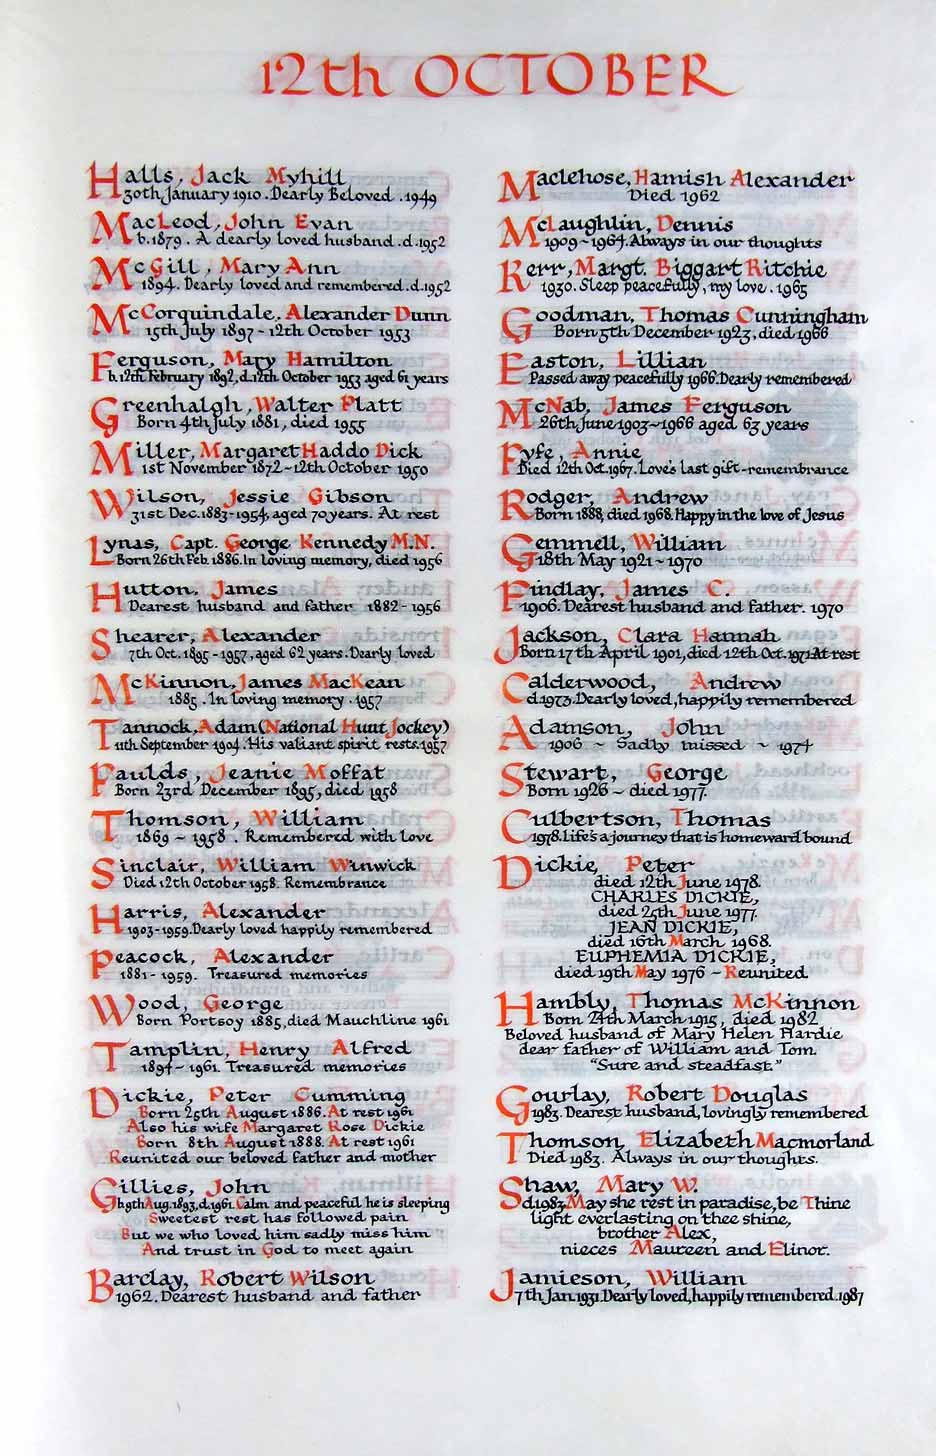 12th OCTOBER
Halls, Jack Myhill
30th January 1910. Dearly Beloved. 1949
MacLeod, John Evan
b. 1879. A dearly loved husband. d. 1952
McGill, Mary Ann
1894. Dearly loved and remembered. d. 1952
McCorquindale, Alexander Dunn
15th July 1897 ~ 12th October 1953
Ferguson, Mary Hamilton
b. 12th February 1892, d. 12th October 1953 aged 61 years
Greenhalgh, Walter Platt
Born 4th July 1881, died 1955
Miller, Margaret Haddo Dick
1st November 1872 ~ 12th October 1950
Wilson, Jessie Gibson
31st Dec. 1883 - 1954, aged 70 years. At rest
Lynas, Capt. George Kennedy M.N.
Born 26th Feb. 1886. In loving memory, died 1956
Hutton, James
Dearest husband and father 1882 - 1956
Shearer, Alexander
7th Oct. 1895 - 1957, aged 62 years. Dearly loved
McKinnon, James MacKean
1885. In loving memory. 1957
Tannock, Adam (National Hunt Jockey)
11th September 1904. His valiant spirit rests. 1957
Faulds, Jeanie Moffat
Born 23rd December 1895, died 1958
Thomson, William
1869 ~ 1958. Remembered with love
Sinclair, William Winwick
Died 12th October 1958. Remembrance
Harris, Alexander
1903 - 1959. Dearly loved happily remembered
Peacock, Alexander
1881 - 1959. Treasured memories
Wood, George
Born Portsoy 1885, died Mauchline 1961
Tamplin, Henry Alfred
1894 ~ 1961. Treasured memories
Dickie, Peter Cumming
Born 25th August 1886. At rest 1961
Also his wife Margaret Rose Dickie
Born 8th August 1888. At rest 1961
Reunited our beloved father and mother
Gillies, John
b. 9th Aug. 1893, d. 1961. Calm and peaceful he is sleeping
Sweetest rest has followed pain
But we who loved him sadly miss him
And trust in God to meet again
Barclay, Robert Wilson
1962. Dearest husband and father
Maclehose, Hamish Alexander
Died 1962
McLaughlin, Dennis
1909 ~ 1964. Always in our thoughts
Kerr, Margt. Biggart Ritchie
1930. Sleep peacefully, my love. 1965
Goodman, Thomas Cunningham
Born 5th December 1923, died 1966
Easton, Lillian
Passed away peacefully 1966. Dearly remembered
McNab, James Ferguson
26th June 1903 ~ 1966 aged 63 years
Fyfe, Annie
Died 12th Oct. 1967. Love's last gift - remembrance
Rodger, Andrew
Born 1888, died 1968. Happy in the love of Jesus
Gemmell, William
18th May 1921 ~ 1970
Findlay, James C.
1906. Dearest husband and father. 1970
Jackson, Clara Hannah
Born 17th April 1901, died 12th Oct. 1971. At rest
Calderwood, Andrew
d. 1973. Dearly loved, happily remembered
Adamson, John
1906 ~ Sadly missed ~ 1974
Stewart, George
Born 1926 ~ died 1977.
Culbertson, Thomas
1978. Life's a journey that is homeward bound
Dickie, Peter
died 12th June 1978.
CHARLES DICKIE,
died 25th June 1977.
JEAN DICKIE,
died 16th March 1968.
EUPHEMIA DICKIE,
died 19th May 1976 ~ Reunited.
Hambly, Thomas McKinnon
Born 24th March 1915, died 1982
Beloved husband of Mary Helen Hardie
dear father of William and Tom.
"Sure and steadfast"
Gourlay, Robert Douglas
1983. Dearest husband, lovingly remembered
Thomson Elizabeth Macmorland
Died 1983. Always in our thoughts.
Shaw, Mary W.
d. 1983. May she rest in paradise, be Thine
light everlasting on thee shine,
brother Alex,
nieces Maureen and Elinor.
Jamieson, William
7th Jan. 1931. Dearly loved, happily remembered. 1987